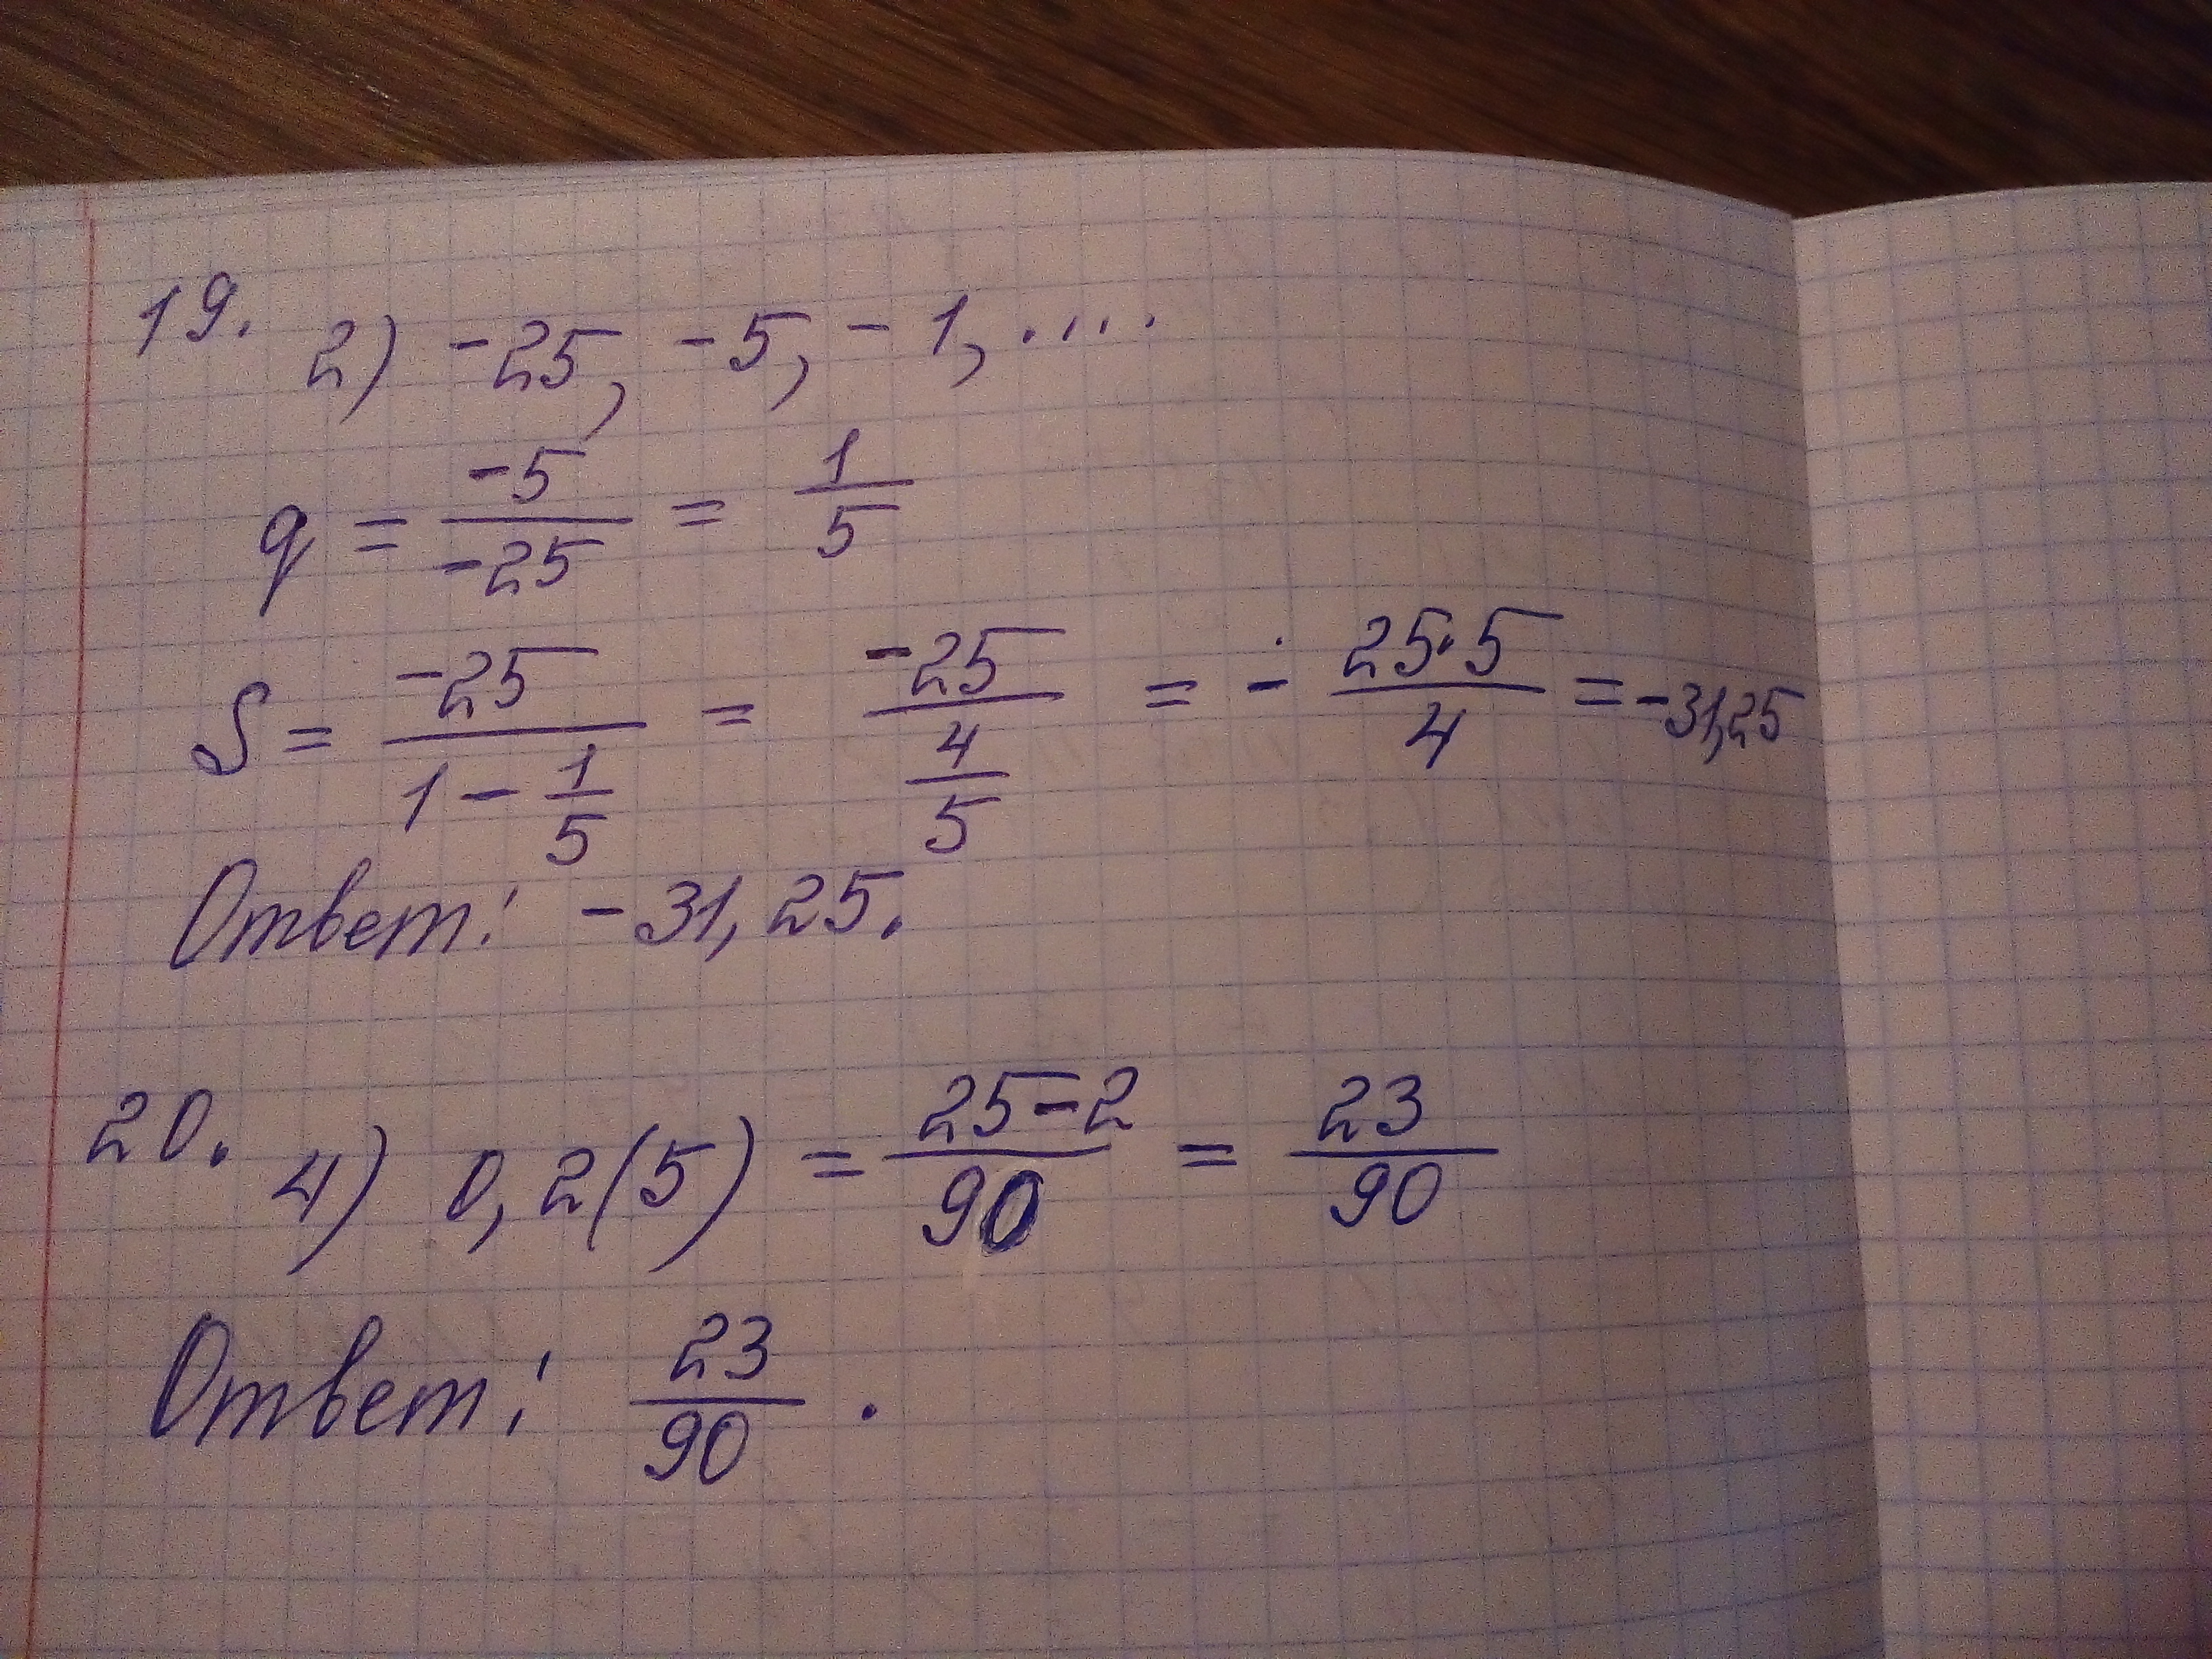 19. 2) -25, -5, -1, ....
q = -5/-25 = 1/5
S = -25/(1 - 1/5) = -25/(4/5) = - 25·5/4 = -31,25
Ответ: -31,25.
20. 4) 0,2(5) = 25-2/90 = 23/90
Ответ: 23/90.